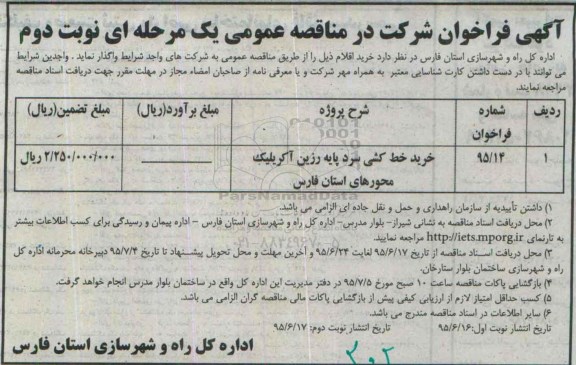 آگهی فراخوان شرکت در مناقصه عمومی یک مرحله ای نوبت دوم
اداره کل راه و شهرسازی استان فارس در نظر دارد خرید اقلام ذیل را از طریق مناقصه عمومی به شرکت های واجد شرایط واگذار نماید . واجدین شرایط
می توانند با در دست داشتن کارت شناسایی معتبر به همراه مهر شرکت و یا معرفی نامه از صاحبان امضاء مجاز در مهلت مقرر جهت دریافت اسناد مناقصه
مراجعه نمایند.
ردیف شماره فراخوان شرح پروژه مبلغ برآورد(ریال) مبلغ تضمین(ریال)
۱ ۹۵/۱۴ خرید خط کشی سرد پایه رزین آکریلیک محورهای استان فارس ۲/۲۵۰/۰۰۰/۰۰۰ ریال
ParsNamadData
۱) داشتن تأییدیه از سازمان راهداری و حمل و نقل جاده ای الزامی می باشد.
۲) محل دریافت اسناد مناقصه به نشانی شیراز– بلوار مدرس– اداره کل راه و شهرسازی استان فارس – اداره پیمان و رسیدگی برای کسب اطلاعات بیشتر
به تارنمای http://iets.mporg.ir مراجعه نمایید.
۳) محل دریافت اسناد مناقصه از تاریخ ۹۵/۶/۱۷ لغایت ۹۵/۶/۲۴ و آخرین مهلت و محل تحویل پیشنهاد تا تاریخ ۹۵/۷/۴ دبیرخانه محرمانه اداره کل
راه و شهرسازی ساختمان بلوار ستارخان.
۴) بازگشایی پاکات مناقصه ساعت ۱۰ صبح مورخ ۹۵/۷/۵ در دفتر مدیریت این اداره کل واقع در ساختمان بلوار مدرس انجام خواهد گرفت.
۵) کسب حداقل امتیاز لازم از ارزیابی کیفی پیش از بازگشایی پاکات مالی مناقصه گران الزامی می باشد.
۶) سایر اطلاعات در اسناد مناقصه مندرج می باشد.
تاریخ انتشار نوبت اول:۹۵/۶/۱۶ تاریخ انتشار نوبت دوم: ۹۵/۶/۱۷
اداره کل راه و شهرسازی استان فارس